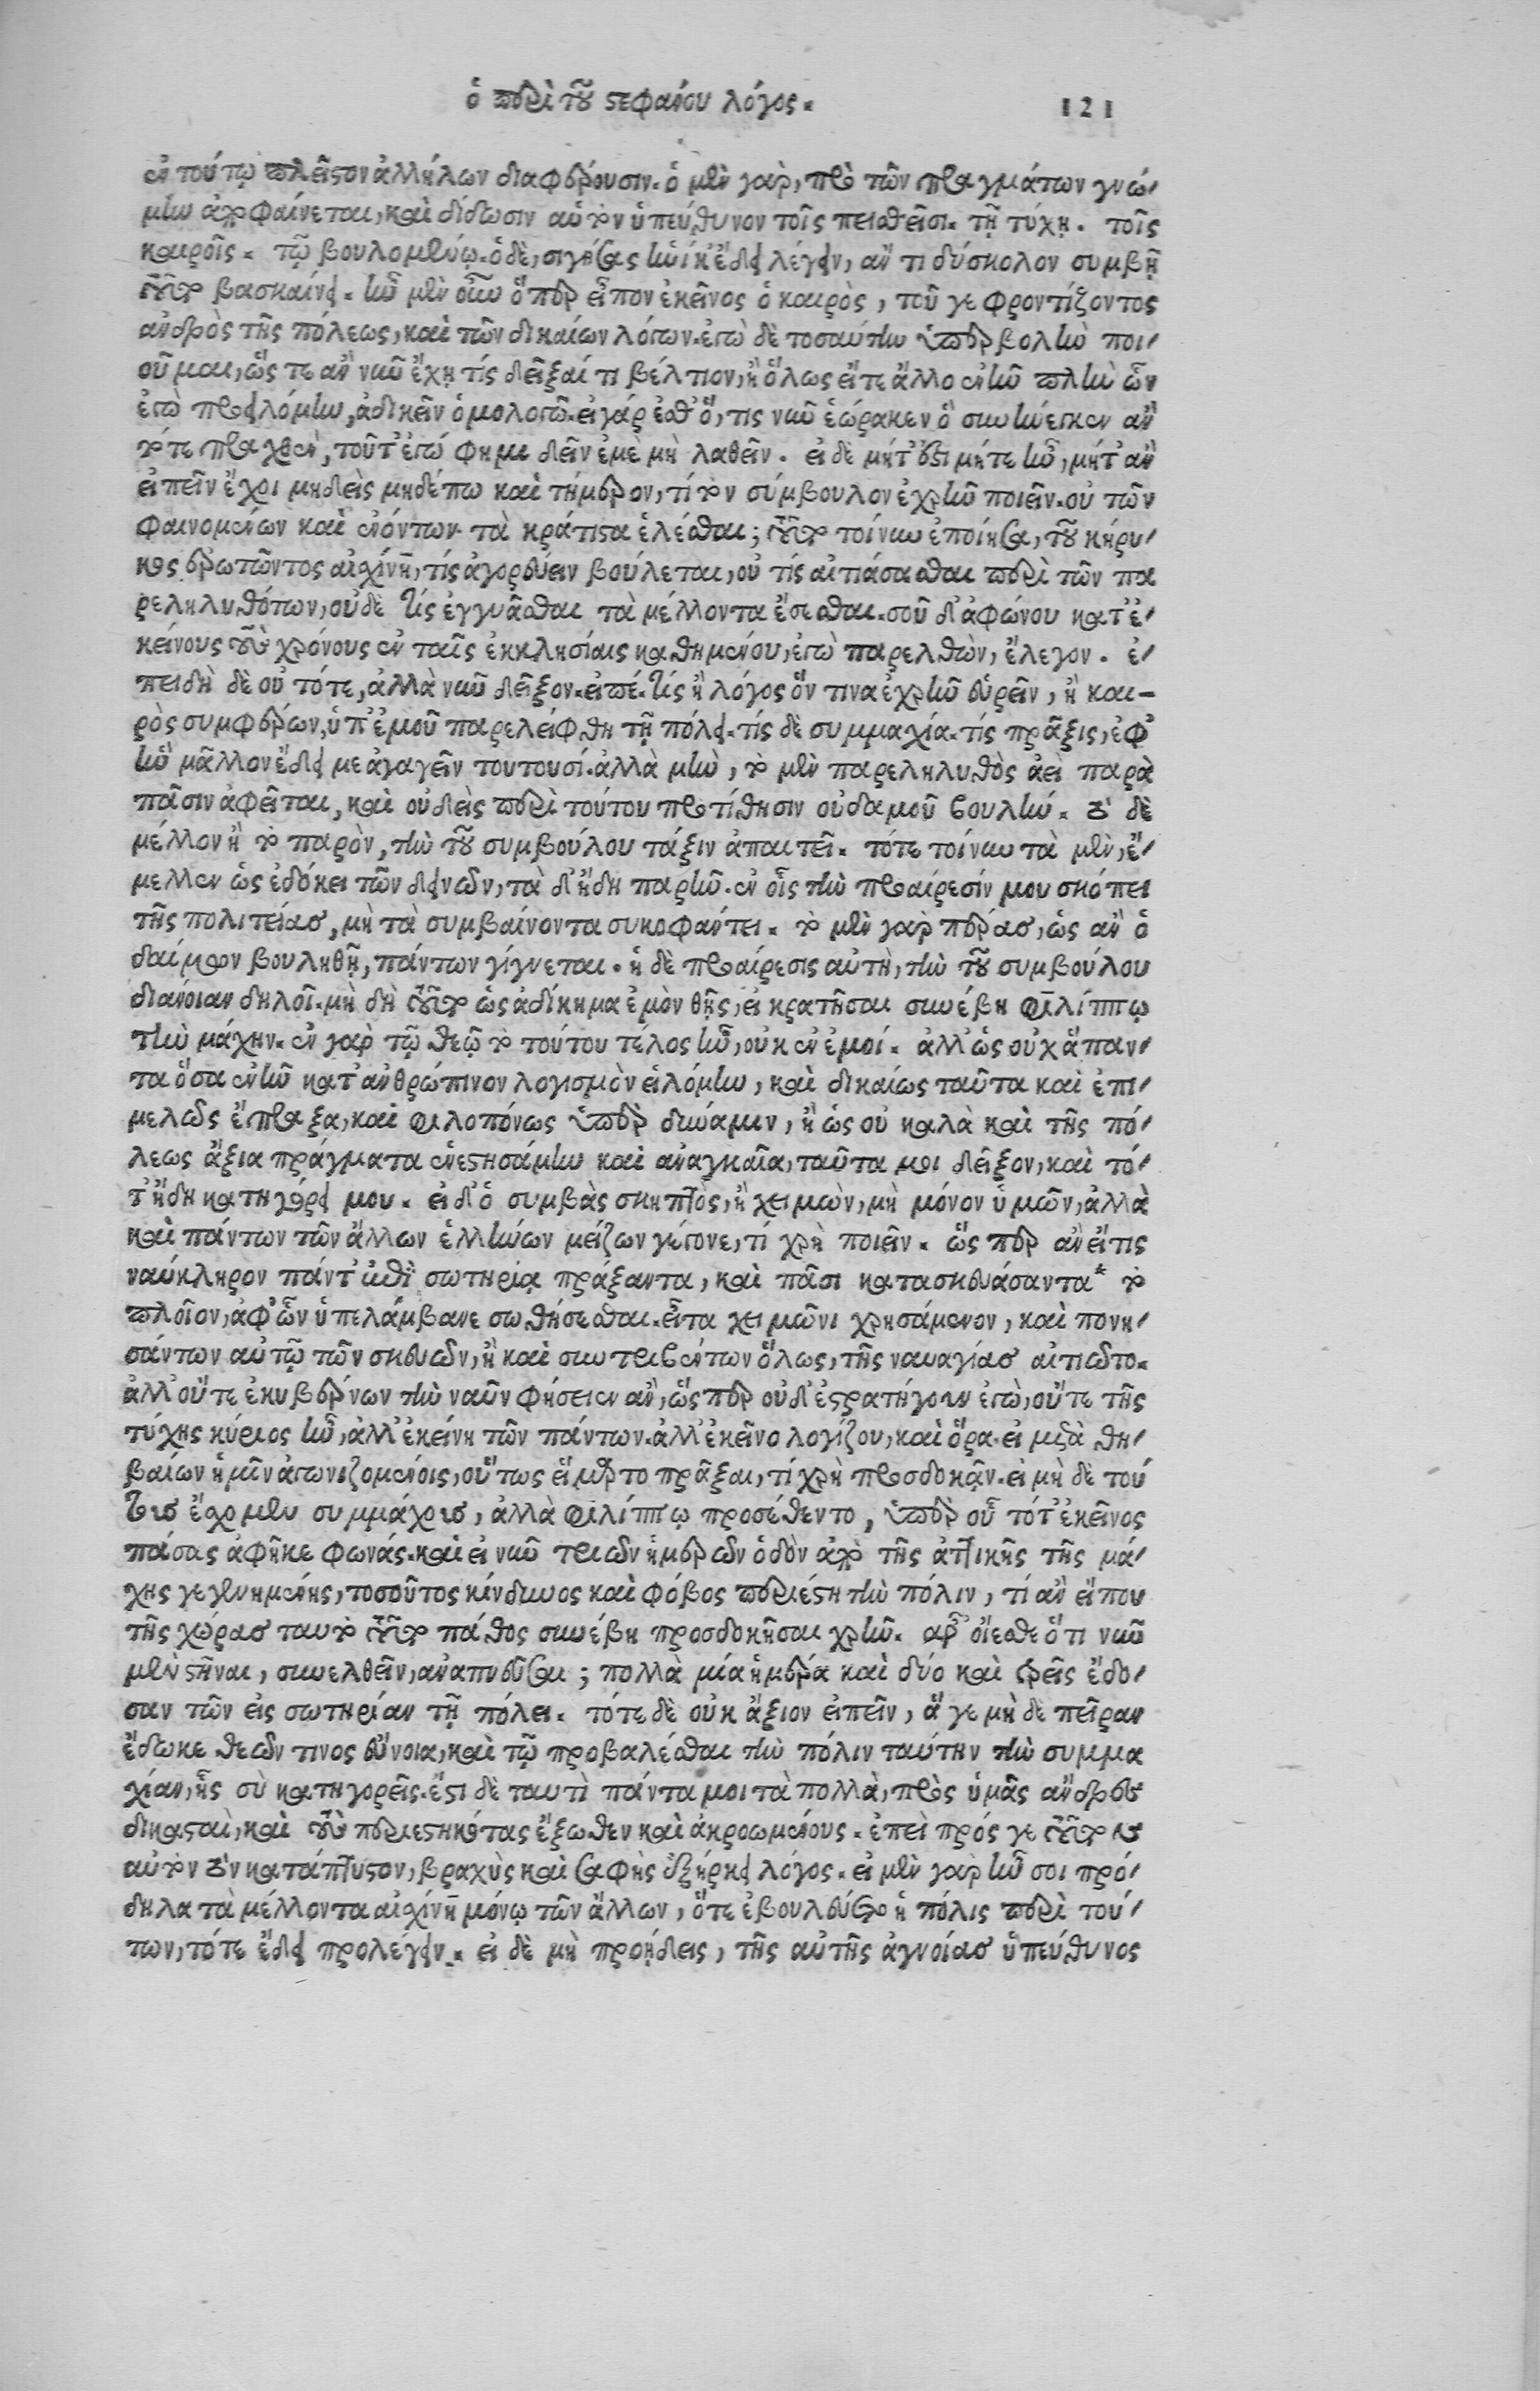 ὁ περὶ τοῦ στεφάνου λόγος. 121
ἐν τούτῳ πλεῖστον ἀλλήλων διαφέρουσιν. ὁ μὲν γὰρ, πρὸ τῶν πραγμάτων γνώ-
μην ἀποφαίνεται, καὶ δίδωσιν αὑτὸν ὑπεύθυνον τοῖς πεισθεῖσι. τῇ τύχῃ. τοῖς
καιροῖς. τῷ βουλομένῳ. ὁ δὲ, σιγήσας ἡνίκ' ἔδει λέγειν, ἄν τι δύσκολον συμβῇ
τοῦτο βασκαίνει. ἦν μὲν οὖν ὅπερ εἶπον ἐκεῖνος ὁ καιρὸς, τοῦ γε φροντίζοντος
ἀνδρὸς τῆς πόλεως, καὶ τῶν δικαίων λόγων. ἐγὼ δὲ τοσαύτην ὑπερβολὴν ποι-
οῦμαι, ὥς τε ἂν νῦν ἔχῃ τίς δεῖξαί τι βέλτιον, ἢ ὅλως εἴ τε ἄλλο ἐνῆν πλὴν ὧν
ἐγὼ προειλόμην, ἀδικεῖν ὁμολογῶ. εἰ γάρ ἐσθ' ὅ, τις νῦν ἑώρακεν ὃ συνήνεγκεν ἂν
τότε πραχθὲν, τοῦτ' ἐγώ φημι δεῖν ἐμὲ μὴ λαθεῖν. εἰ δὲ μήτ' ἔστι μήτε ἦν, μήτ' ἂν
εἰπεῖν ἔχοι μηδεὶς μηδέπω καὶ τήμερον, τί τὸν σύμβουλον ἐχρῆν ποιεῖν. οὐ τῶν
φαινομένων καὶ ἐνόντων τὰ κράτιστα ἑλέσθαι; τοῦτο τοίνυν ἐποίησα, τοῦ κήρυ-
κος ἐρωτῶντος αἰσχίνη, τίς ἀγορεύειν βούλεται, οὐ τίς αἰτιάσασθαι περὶ τῶν πα
ρεληλυθότων, οὐδὲ τίς ἐγγυᾶσθαι τὰ μέλλοντα ἔσεσθαι. σοῦ δ' ἀφώνου κατ' ἐ-
κείνους τοὺς χρόνους ἐν ταῖς ἐκκλησίαις καθημένου, ἐγὼ παρελθὼν, ἔλεγον. ἐ-
πειδὴ δὲ οὐ τότε, ἀλλὰ νῦν δεῖξον. εἰπέ. τίς ἢ λόγος ὅν τινα ἐχρῆν εὑρεῖν, ἢ και-
ρὸς συμφέρων, ὑπ' ἐμοῦ παρελείφθη τῇ πόλει. τίς δὲ συμμαχία. τίς πρᾶξις, ἐφ'
ἣν μᾶλλον ἔδει με ἀγαγεῖν τουτουσί. ἀλλὰ μὴν, τὸ μὲν παρεληλυθὸς ἀεὶ παρὰ
πᾶσιν ἀφεῖται, καὶ οὐδεὶς περὶ τούτου προτίθησιν οὐδαμοῦ βουλήν. τὸ δὲ
μέλλον ἢ τὸ παρὸν, τὴν τοῦ συμβούλου τάξιν ἀπαιτεῖ. τότε τοίνυν τὰ μὲν, ἔ-
μελλεν ὡς ἐδόκει τῶν δεινῶν, τὰ δ' ἤδη παρῆν. ἐν οἷς τὴν προαίρεσίν μου σκόπει
τῆς πολιτείας, μὴ τὰ συμβαίνοντα συκοφάντει. τὸ μὲν γὰρ πέρας, ὡς ἂν ὁ
δαίμων βουληθῇ, πάντων γίγνεται. ἡ δὲ προαίρεσις αὐτὴ, τὴν τοῦ συμβούλου
διάνοιαν δηλοῖ. μὴ δὴ τοῦτο ὡς ἀδίκημα ἐμὸν θῇς, εἰ κρατῆσαι συνέβη φιλίππῳ
τὴν μάχην. ἐν γὰρ τῷ θεῷ τὸ τούτου τέλος ἦν, οὐκ ἐν ἐμοί. ἀλλ' ὡς οὐχ ἅπαν-
τα ὅσα ἐνῆν κατ' ἀνθρώπινον λογισμὸν εἱλόμην, καὶ δικαίως ταῦτα καὶ ἐπι-
μελῶς ἔπραξα, καὶ φιλοπόνως ὑπὲρ δύναμιν, ἢ ὡς οὐ καλὰ καὶ τῆς πό-
λεως ἄξια πράγματα ἐνεστησάμην καὶ ἀναγκαῖα, ταῦτα μοι δεῖξον, καὶ τό-
τ' ἤδη κατηγόρει μου. εἰ δ' ὁ συμβὰς σκηπτὸς, ἢ χειμὼν, μὴ μόνον ὑμῶν, ἀλλὰ
καὶ πάντων τῶν ἄλλων ἑλλήνων μείζων γέγονε, τί χρὴ ποιεῖν. ὥς περ ἂν εἴ τις
ναύκληρον πάντ' ἐπὶ σωτηρίᾳ πράξαντα, καὶ πᾶσι κατασκευάσαντα* τὸ
πλοῖον, ἀφ' ὧν ὑπελάμβανε σωθήσεσθαι. εἶτα χειμῶνι χρησάμενον, καὶ πονη-
σάντων αὐτῷ τῶν σκευῶν, ἢ καὶ συντριβέντων ὅλως, τῆς ναυαγίας αἰτιῷτο.
ἀλλ' οὔτε ἐκυβέρνων τὴν ναῦν φήσειεν ἂν, ὥς περ οὐδ' ἐστρατήγουν ἐγὼ, οὔτε τῆς
τύχης κύριος ἦν, ἀλλ' ἐκείνη τῶν πάντων. ἀλλ' ἐκεῖνο λογίζου, καὶ ὅρα. εἰ μετὰ θη-
βαίων ἡμῖν ἀγωνιζομένοις, οὕτως εἵμαρτο πρᾶξαι, τί χρὴ προσδοκᾷν. εἰ μὴ δὲ τού
τους ἔσχομεν συμμάχους, ἀλλὰ φιλίππῳ προσέθεντο, ὑπὲρ οὗ τότ' ἐκεῖνος
πάσας ἀφῆκε φωνάς. καὶ εἰ νῦν τριῶν ἡμερῶν ὁδὸν ἀπὸ τῆς ἀττικῆς τῆς μά-
χης γεγενημένης, τοσοῦτος κίνδυνος καὶ φόβος περιέστη τὴν πόλιν, τί ἂν εἴ που
τῆς χώρας ταυτὸ τοῦτο πάθος συνέβη προσδοκῆσαι χρῆν. ἆρ' οἴεσθε ὅτι νῦν
μὲν στῆναι, συνελθεῖν, ἀναπνεῦσαι; πολλὰ μία ἡμέρα καὶ δύο καὶ τρεῖς ἔδο-
σαν τῶν εἰς σωτηρίαν τῇ πόλει. τότε δὲ οὐκ ἄξιον εἰπεῖν, ἅ γε μὴ δὲ πεῖραν
ἔδωκε θεῶν τινος εὔνοια, καὶ τῷ προβαλέσθαι τὴν πόλιν ταύτην τὴν συμμα
χίαν, ἧς σὺ κατηγορεῖς. ἔστι δὲ ταυτὶ πάντα μοι τὰ πολλὰ, πρὸς ὑμᾶς ἄνδρες
δικασταὶ, καὶ τοὺς περιεστηκότας ἔξωθεν καὶ ἀκροωμένους. ἐπεὶ πρός γε τοῦτον
αὐτὸν τὸν κατάπτυστον, βραχὺς καὶ σαφὴς ἐξήρκει λόγος. εἰ μὲν γὰρ ἦν σοι πρό-
δηλα τὰ μέλλοντα αἰσχίνη μόνῳ τῶν ἄλλων, ὅτε ἐβουλεύετο ἡ πόλις περὶ τού-
των, τότε ἔδει προλέγειν. εἰ δὲ μὴ προῄδεις, τῆς αὐτῆς ἀγνοίας ὑπεύθυνος